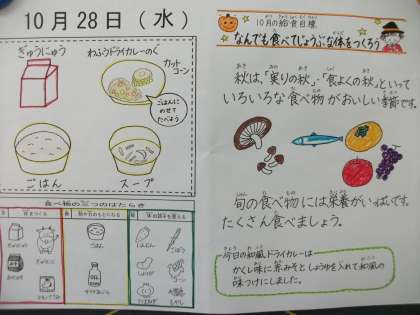 10月28日（水）
ぎゅうにゅう
わふうドライカレーのぐ
カット
コーン
ごはんに
のせて
たべよう
ごはん
スープ
食べ物の三つのはたらき
ごはん
10月の給食目標
なんでも食べてじょうぶな体をつくろう
秋は、「実りの秋」・「食よくの秋」といって
いろいろな食べ物がおいしい季節です。
旬の食べ物には栄養がいっぱいです。
たくさん食べましょう。
今日の和風ドライカレーは
かくし味に赤みそとしょうゆを入れて和風の
味つけにしました。